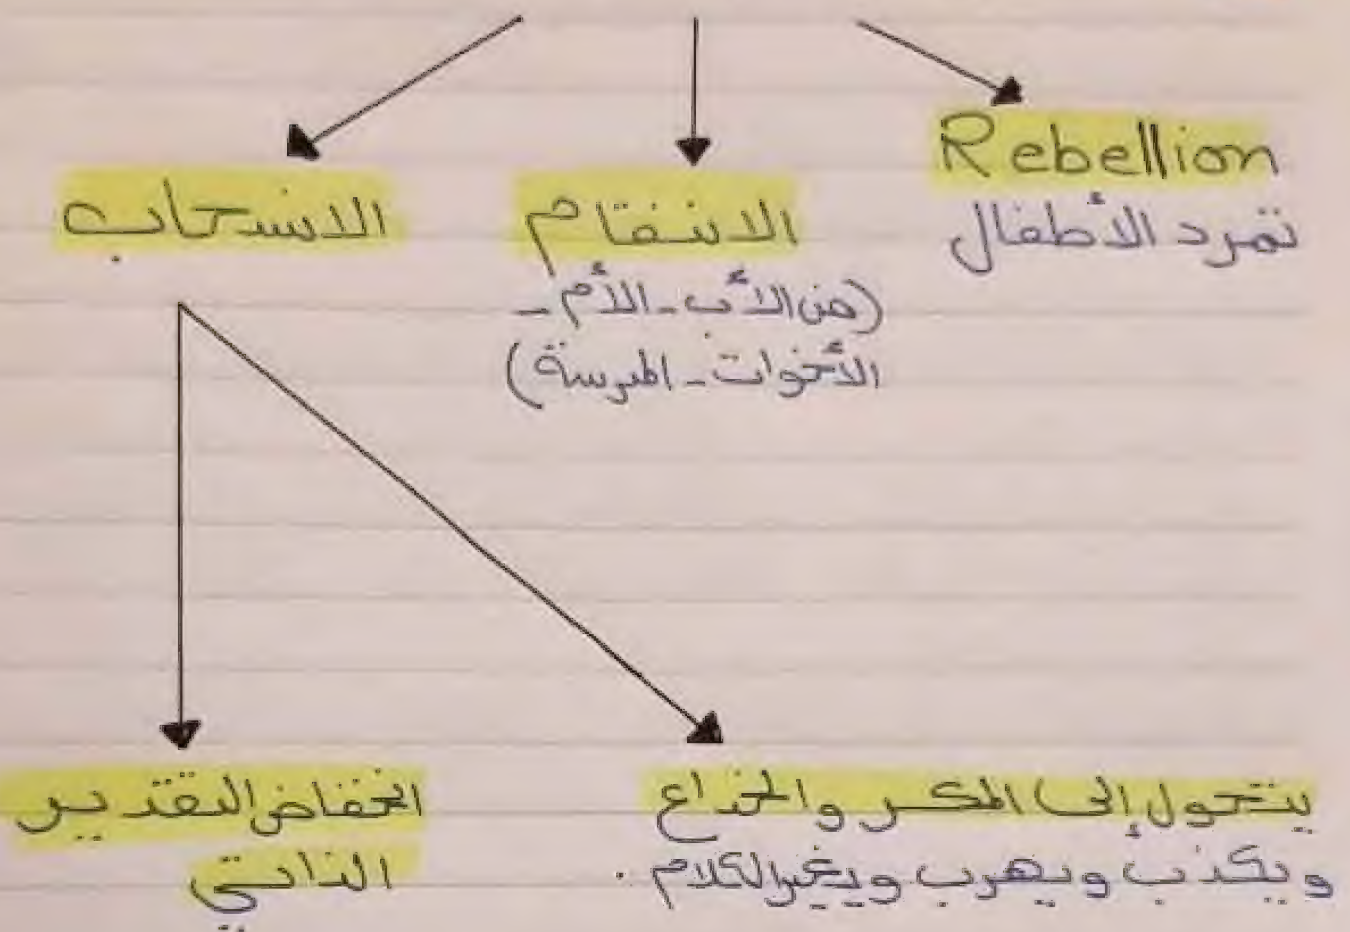 Rebellion
تمرد الأطفال
الانتقام
(من الأب - الأم -
الأخوات - المدرسة)
الانسحاب
يتحول إلى المكر والخداع
ويكذب ويهرب ويغير الكلام.
انخفاض التقدير
الذاتي